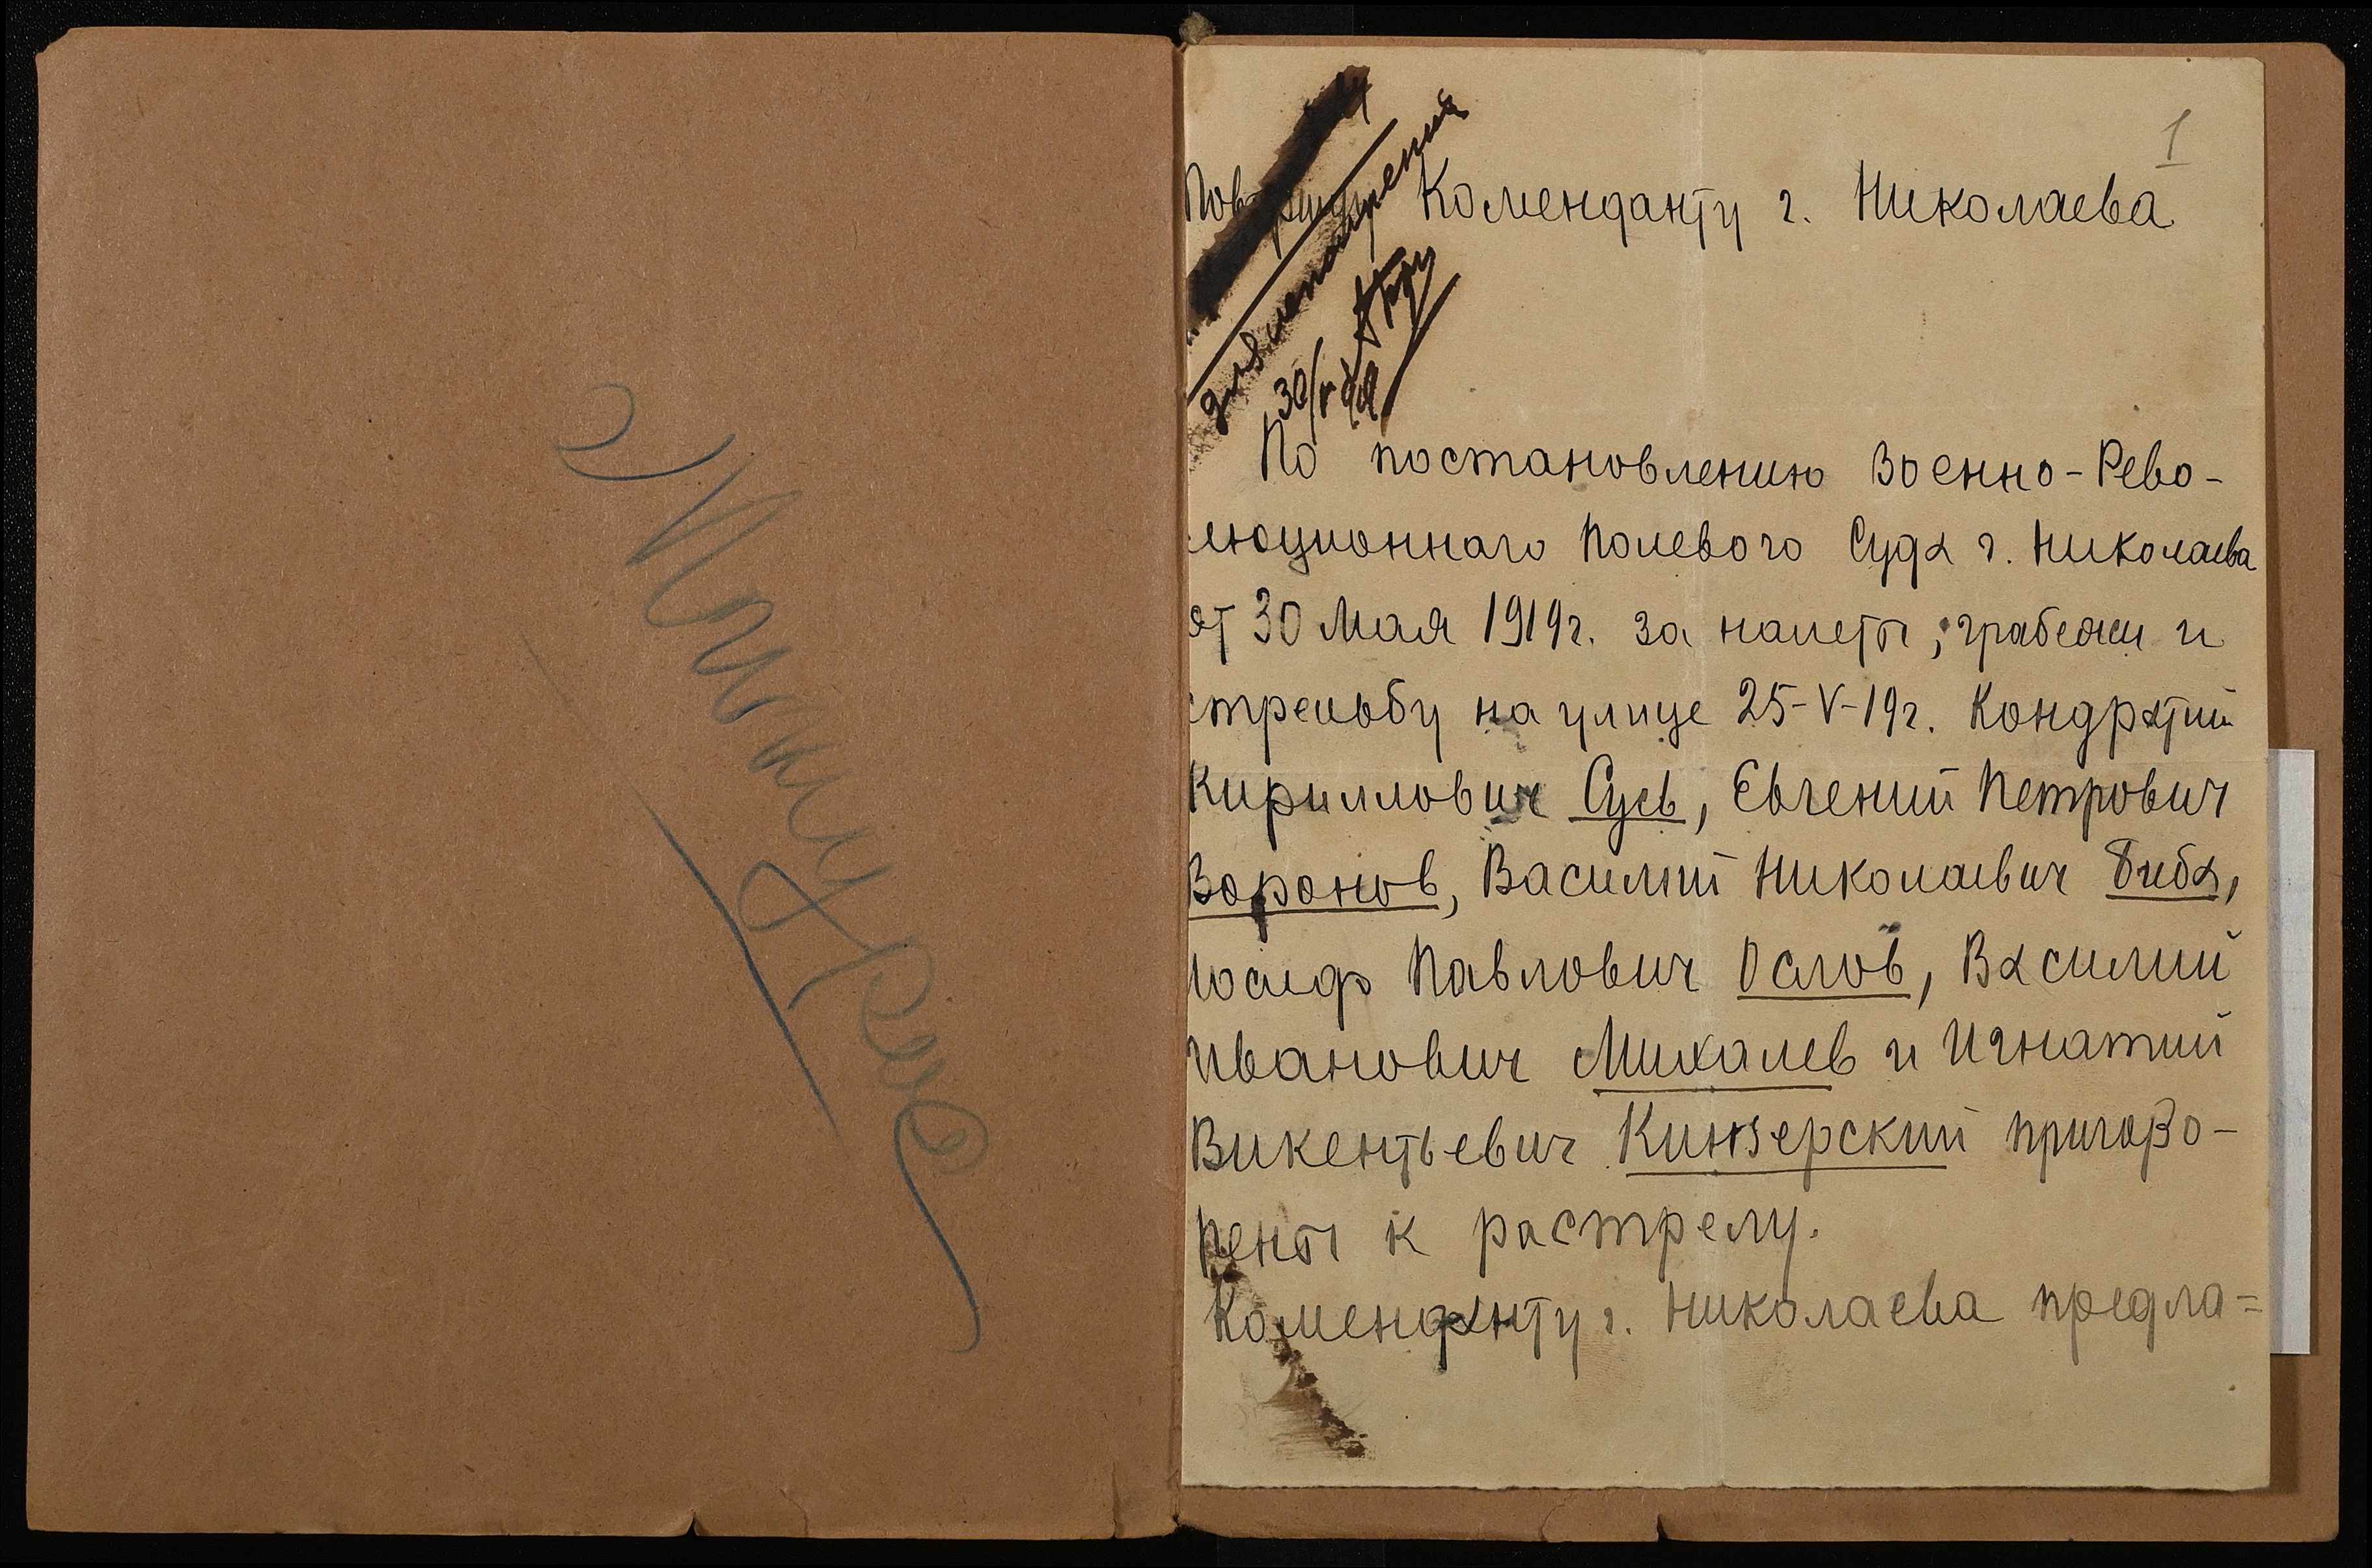 1
Коменданту г. Николаева
30/V 19
По постановлению Военно-Рево-
люционнаго Полевого Суда г. Николаева
от 30 Мая 1919г. за налеты, грабежи и
стрельбу на улице 25-V-19г. Кондратий
Кириллович Сусь, Евгений Петрович
Воронов, Василий Николаевич Биба,
Иосиф Павлович Ослов, Василий
Иванович Михалев и Игнатий
Викентьевич Кинзерский пригово-
рены к растрелу.
Коменданту г. Николаева предла=